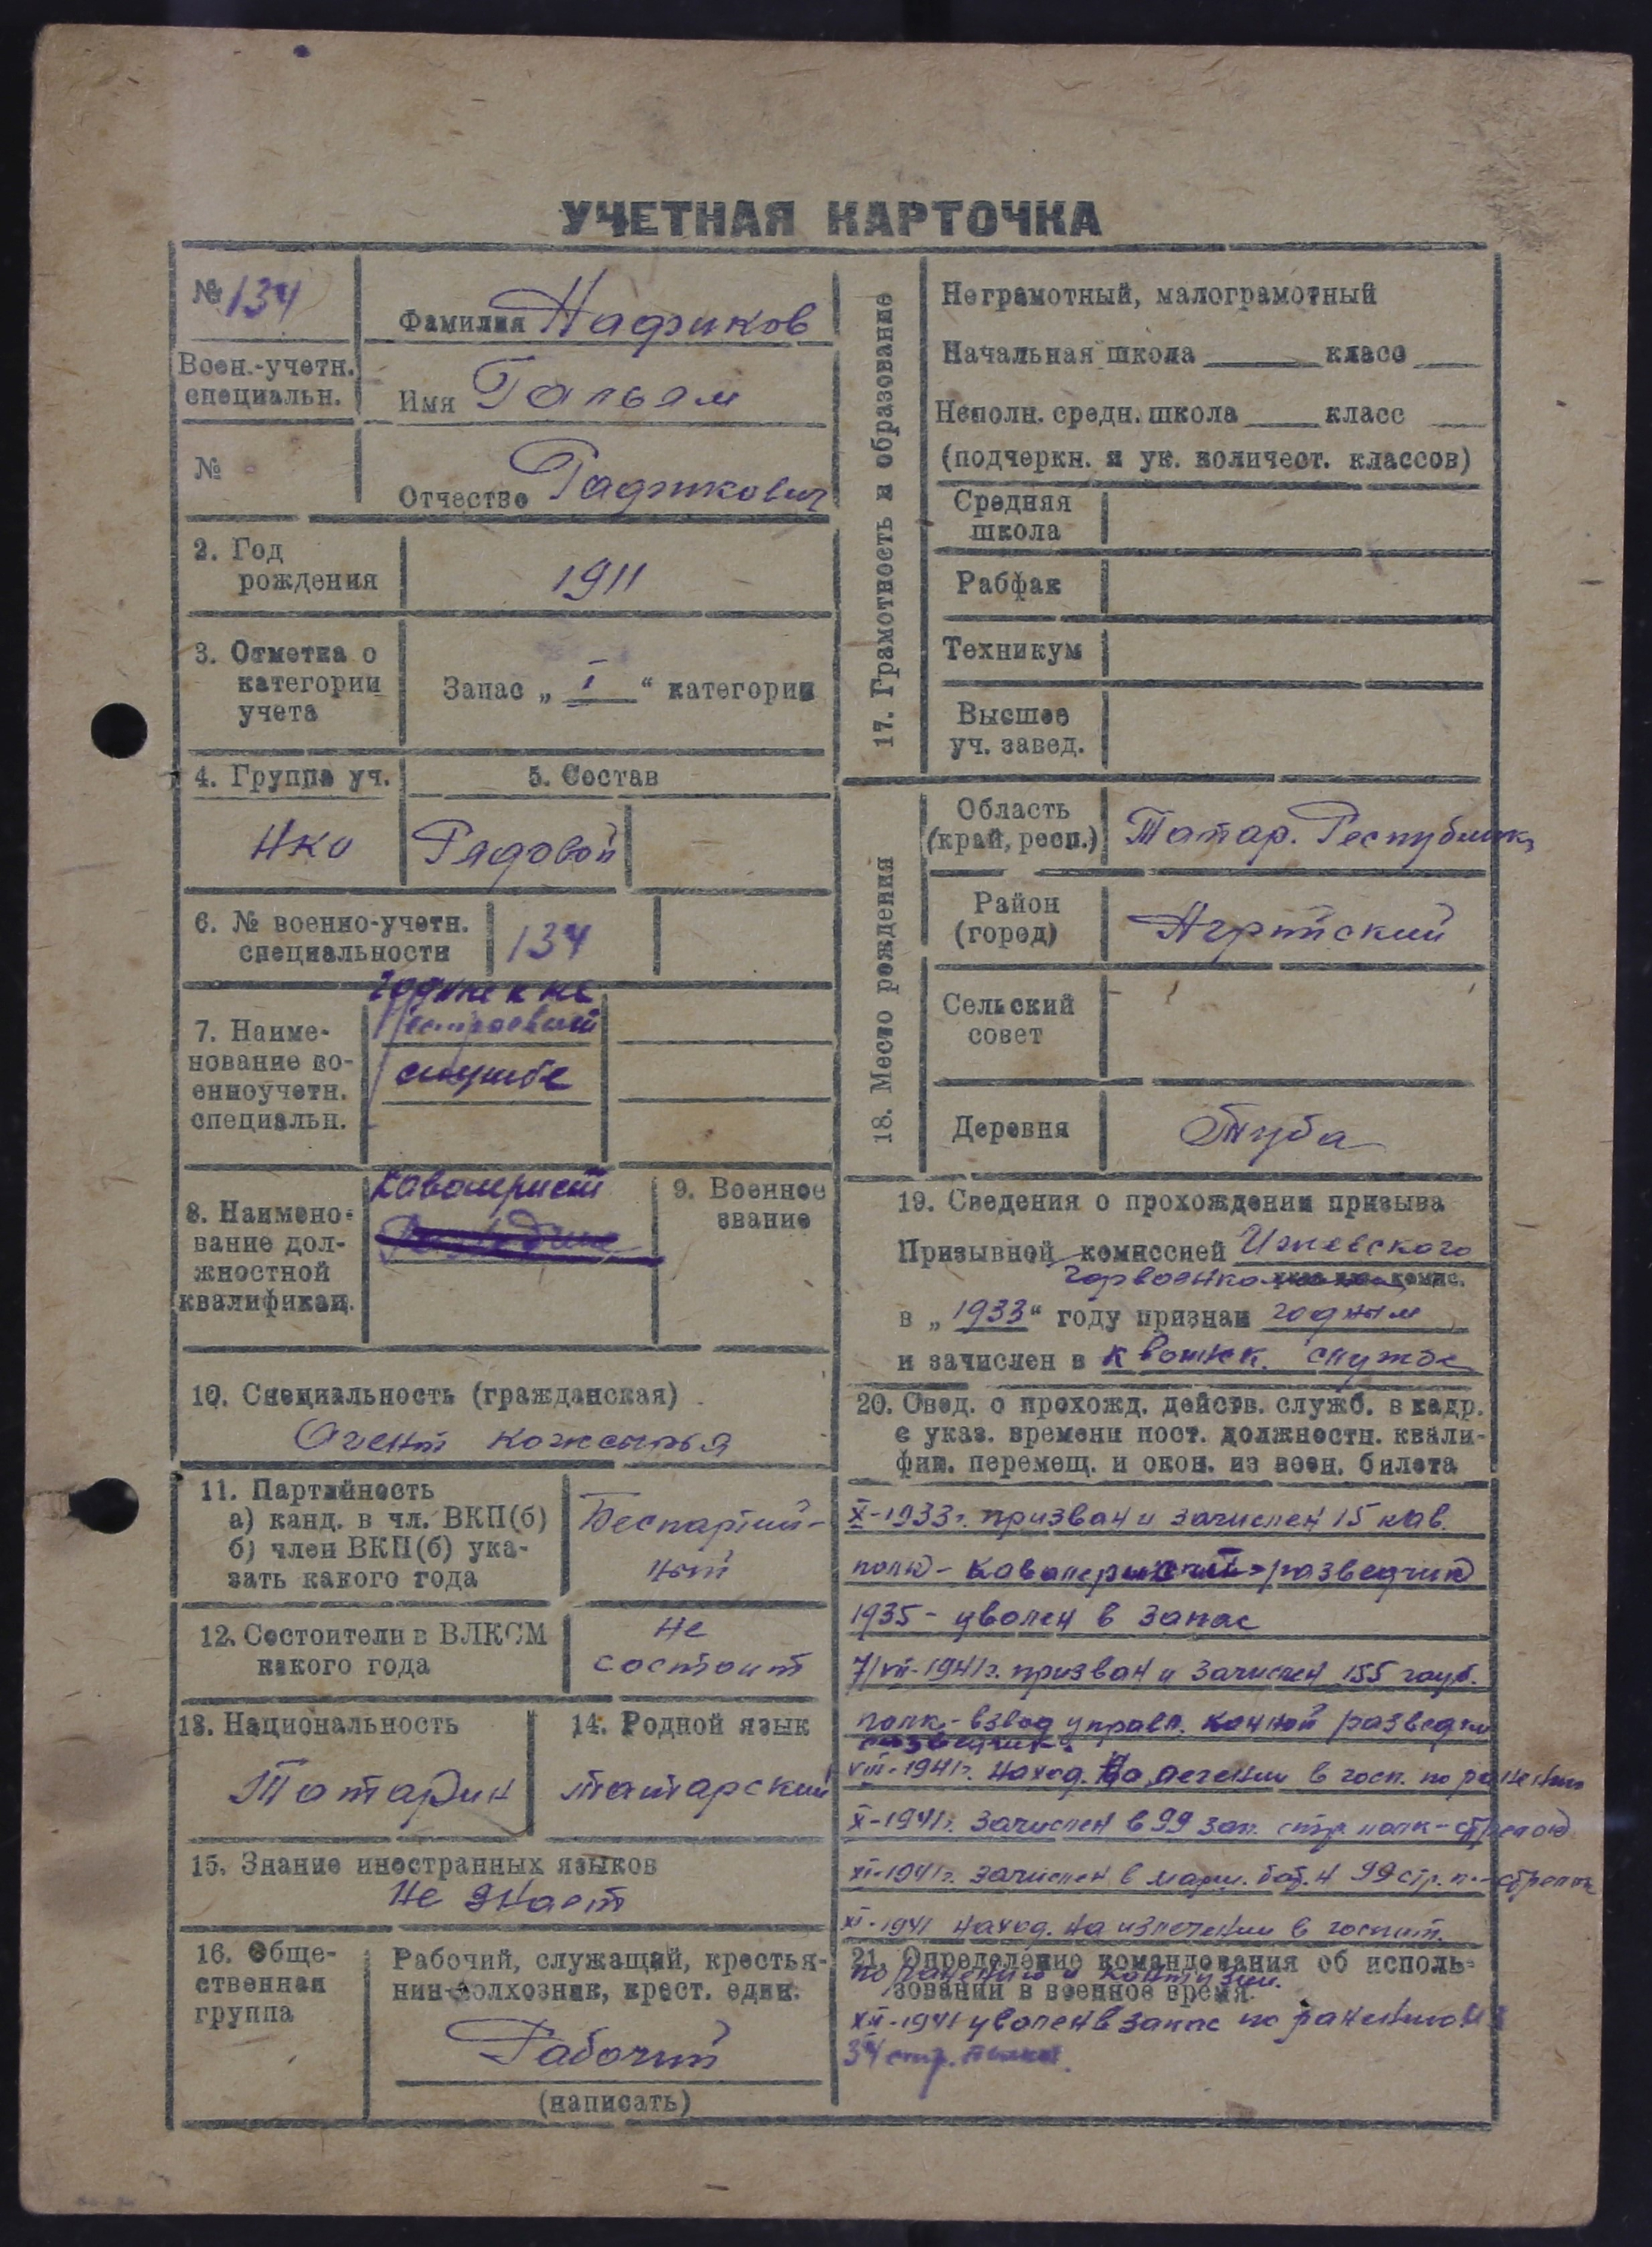 УЧЕТНАЯ КАРТОЧКА
№ 134
Фамилия Надиков
Воен.-учетн.
специальн.
Имя Гальям
№
Отчество Гадикович
2. Год
рождения
1911
3. Отметка о
категории
учета
Запас „ I “ категории
4. Группа уч.
5. Состав
НКО
Рядовой
6. № военно-учетн.
специальности
134
7. Наиме-
нование во-
енноучетн.
специальн.
Годные к не
строевой
службе
8. Наимено-
вание дол-
жностной
квалификац.
Кавалерист
9. Военное
звание
10. Специальность (гражданская)
Агент кожсырья
11. Партийность
а) канд. в чл. ВКП(б)
б) член ВКП(б) ука-
зать какого года
Беспартий-
ный
12. Состоитепи в ВЛКСМ
какого года
Не
состоит
13. Национальность
Татарин
14. Родной язык
татарский
15. Знание иностранных языков
Не знает
16. Обще-
ственная
группа
Рабочий, служащий, крестья-
нин-колхозник, крест. един.
Рабочий
(написать)
17. Грамотность и образование
Неграмотный, малограмотный
Начальная школа класс
Неполн. средн. школа класс
(подчеркн. и ук. количест. классов)
Средняя
школа
Рабфак
Техникум
Высшее
уч. завед.
18. Место рождения
Область
(край, респ.)
Татар. Республик
Район
(город)
Сельский
совет
Деревня
Туба
19. Сведения о прохождении призыва
Призывной комиссией Ижевского
горвоенко комис.
в „ 1933 “ году признан годным
и зачислен в к воинск. службе
20. Свед. о прохожд. действ. служб. в кадр.
с указ. времени пост. должностн. квали-
фик. перемещ. и окон. из воен. билета
X-1933г. призван и зачислен 15 кав.
полк - кавалерист разведчик
1935 - уволен в запас
7/VII-1941г. призван и зачислен 155 гауб.
полк - взвод управл. конной разведки
разведчик.
VIII-1941г. наход. на лечении в госп. по ранению
X-1941г. зачислен в 99 зап. стр. полк - стрелок
XI-1941г. зачислен в марш. бат. 99 стр. п. - стрелок
XI-1941 наход. на излечении в госпит.
21. Определение командования об исполь-
по ранению и контузии.
зовании в военное время
XII-1941 уволен в запас по ранению из
34 стр. полка.